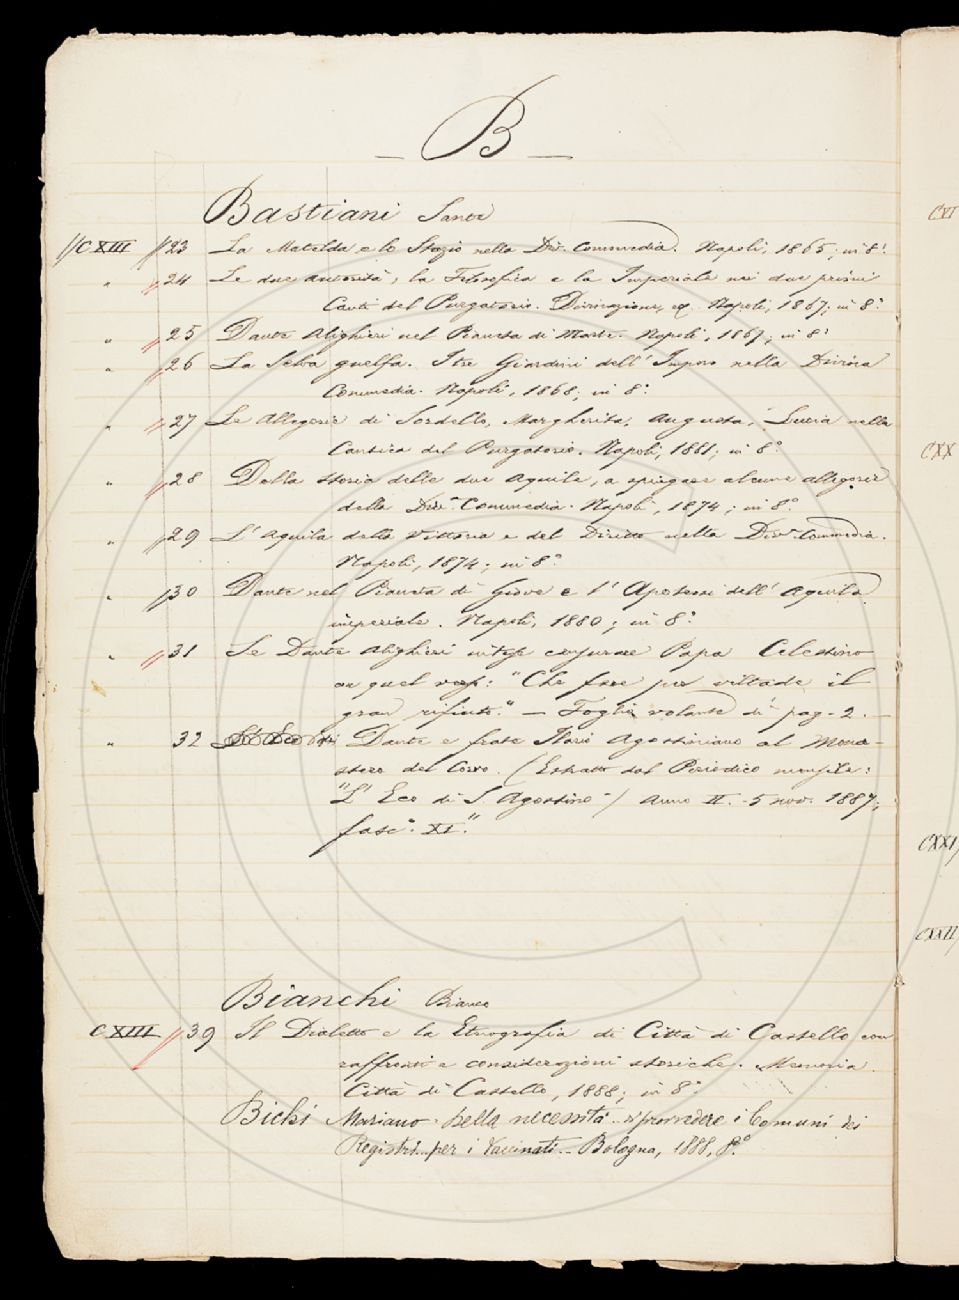 — B —
Bastiani Sante
CXIII 23 La Matelda e lo Stazio nella Div. Commedia. Napoli, 1865; in 8°
" 24 Le due autorità, la Filosofica e la Imperiale nei due primi
Canti del Purgatorio. Napoli, 1867; in 8°
" 25 Dante Alighieri nel Pianeta di Marte. Napoli, 1867; in 8°
" 26 La Selva guelfa. I tre Giardini dell' Impero nella Divina
Commedia. Napoli, 1868; in 8°
" 27 Le Allegorie di Sordello, Margherita, Augusta, Lucia nella
Cantica del Purgatorio. Napoli, 1881; in 8°
" 28 Della storia delle due Aquile, a spiegare alcune allegorie
della Div.a Commedia. Napoli, 1874; in 8°
" 29 L' Aquila della Vittoria e del Diritto nella Div.a Commedia.
Napoli, 1874; in 8°
" 30 Dante nel Pianeta di Giove e l' Apoteosi dell' Aquila
imperiale. Napoli, 1880; in 8°
" 31 Se Dante Alighieri intese censurare Papa Celestino
in quel verso: "Che fece per viltade il
gran rifiuto." — Foglio volante di pag. 2. —
" 32 Dante e frate Ilario Agostiniano al Mona-
stero del Corvo. (Estratto dal Periodico mensile:
"L' Eco di S. Agostino") Anno II. 5 nov. 1887;
fasc.° XI."
Bianchi Bianco
CXIII 39 Il Dialetto e la Etnografia di Città di Castello con
raffronti e considerazioni storiche. Memoria.
Città di Castello, 1888; in 8°
Bichi Mariano. Della necessità di provvedere i Comuni dei
Registri per i Vaccinati. Bologna, 1888, 8°.
CVI
CXX
CXXI
CXXII